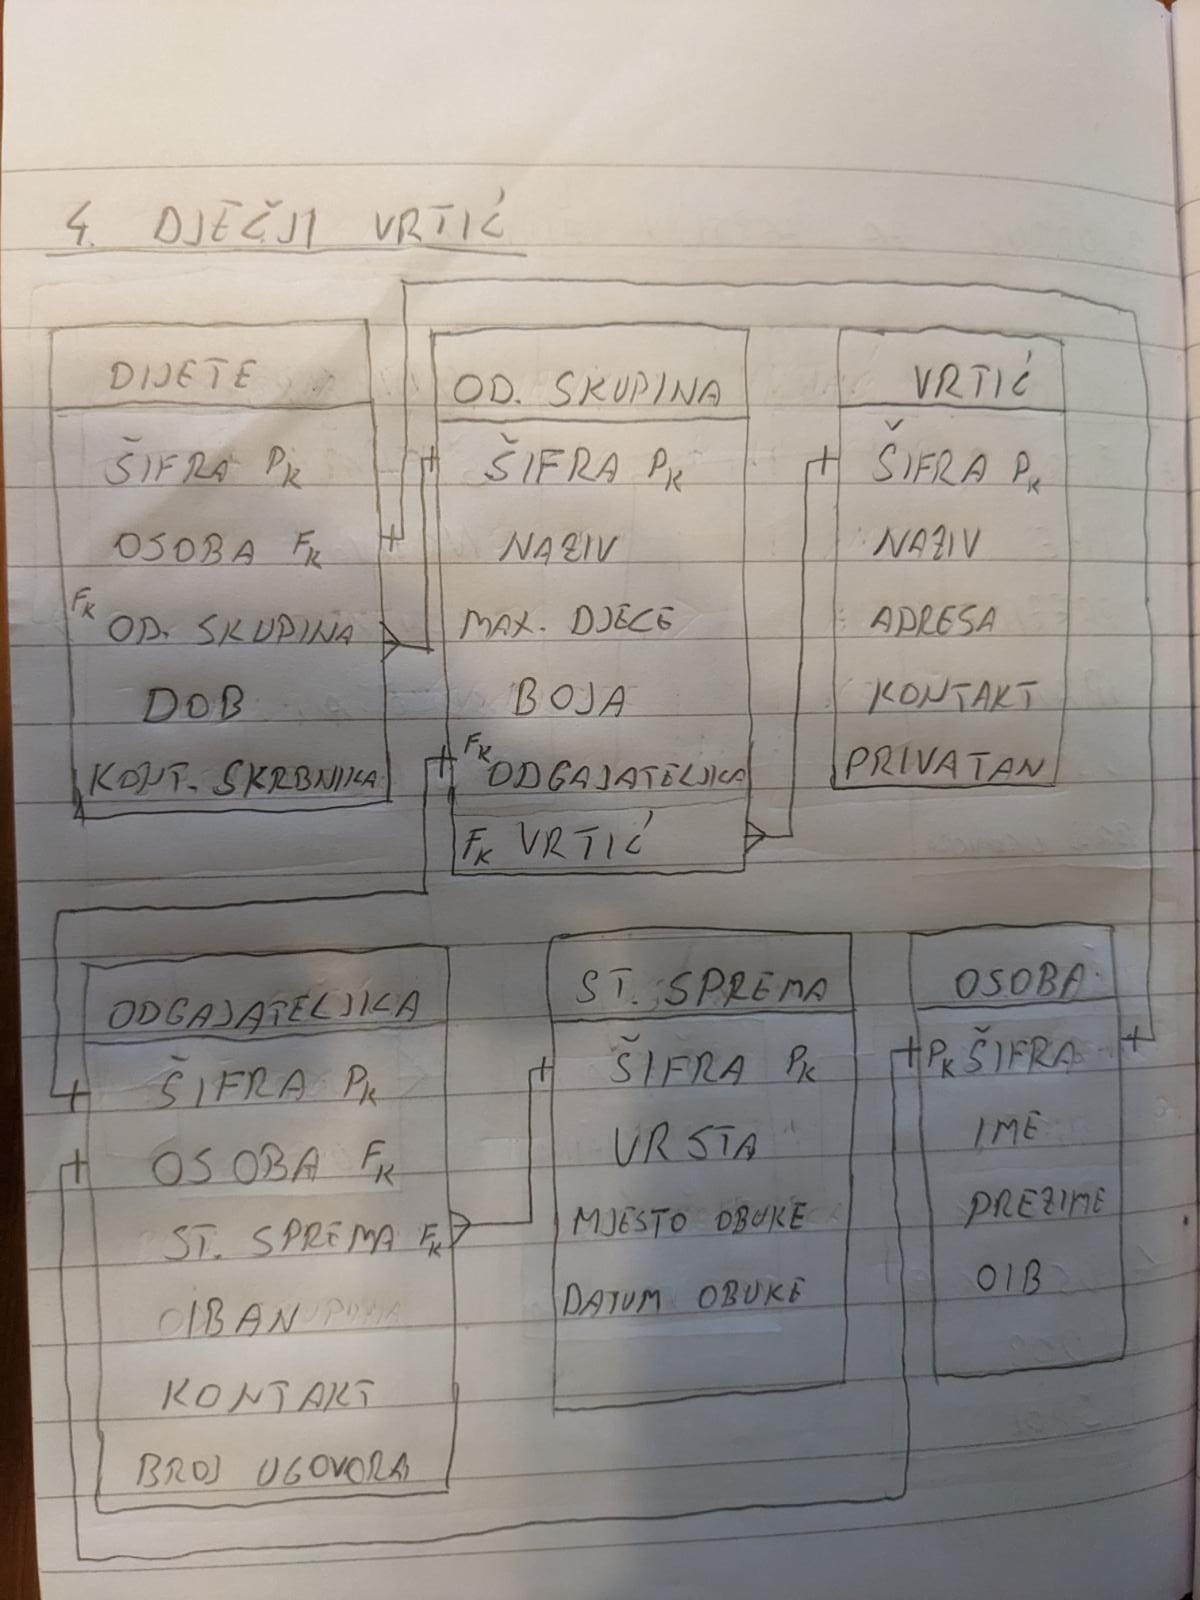 4. DJEČJI VRTIĆ
DIJETE
ŠIFRA PK
OSOBA FK
FK OD. SKUPINA
DOB
KONT. SKRBNIKA
OD. SKUPINA
ŠIFRA PK
NAZIV
MAX. DJECE
BOJA
FK ODGAJATELJICA
FK VRTIĆ
VRTIĆ
ŠIFRA PK
NAZIV
ADRESA
KONTAKT
PRIVATAN
ODGAJATELJICA
ŠIFRA PK
OSOBA FK
ST. SPREMA FK
IBAN
KONTAKT
BROJ UGOVORA
ST. SPREMA
ŠIFRA PK
VRSTA
MJESTO OBUKE
DATUM OBUKE
OSOBA
PK ŠIFRA
IME
PREZIME
OIB